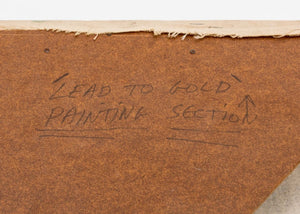 "LEAD TO GOLD"
PAINTING SECTION